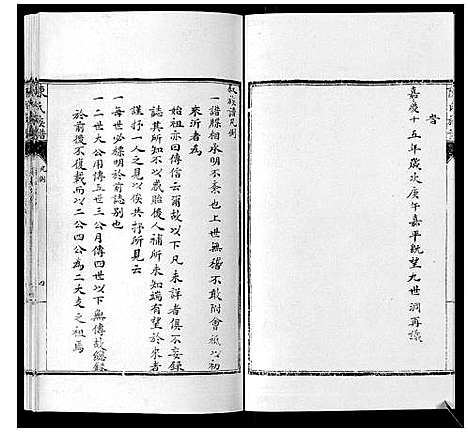 嘉慶十五年歲次庚午嘉平既望九世潤再識
敘族譜凡例
一譜牒相承明不紊也上世無稽不敢附會祗以初
來沂者為
始祖亦曰傳信云爾故以下凡未詳者俱不妄錄
誌其所知不以貽後人補所未知端有望於來者
謹抒一人之見以俟共抒所見云
一每世必標明於前誌別也
一二世大公用傳五世三公月傳四世以下無傳故總錄
於前後不復載而以二公四公為二大支之祖焉
凡例